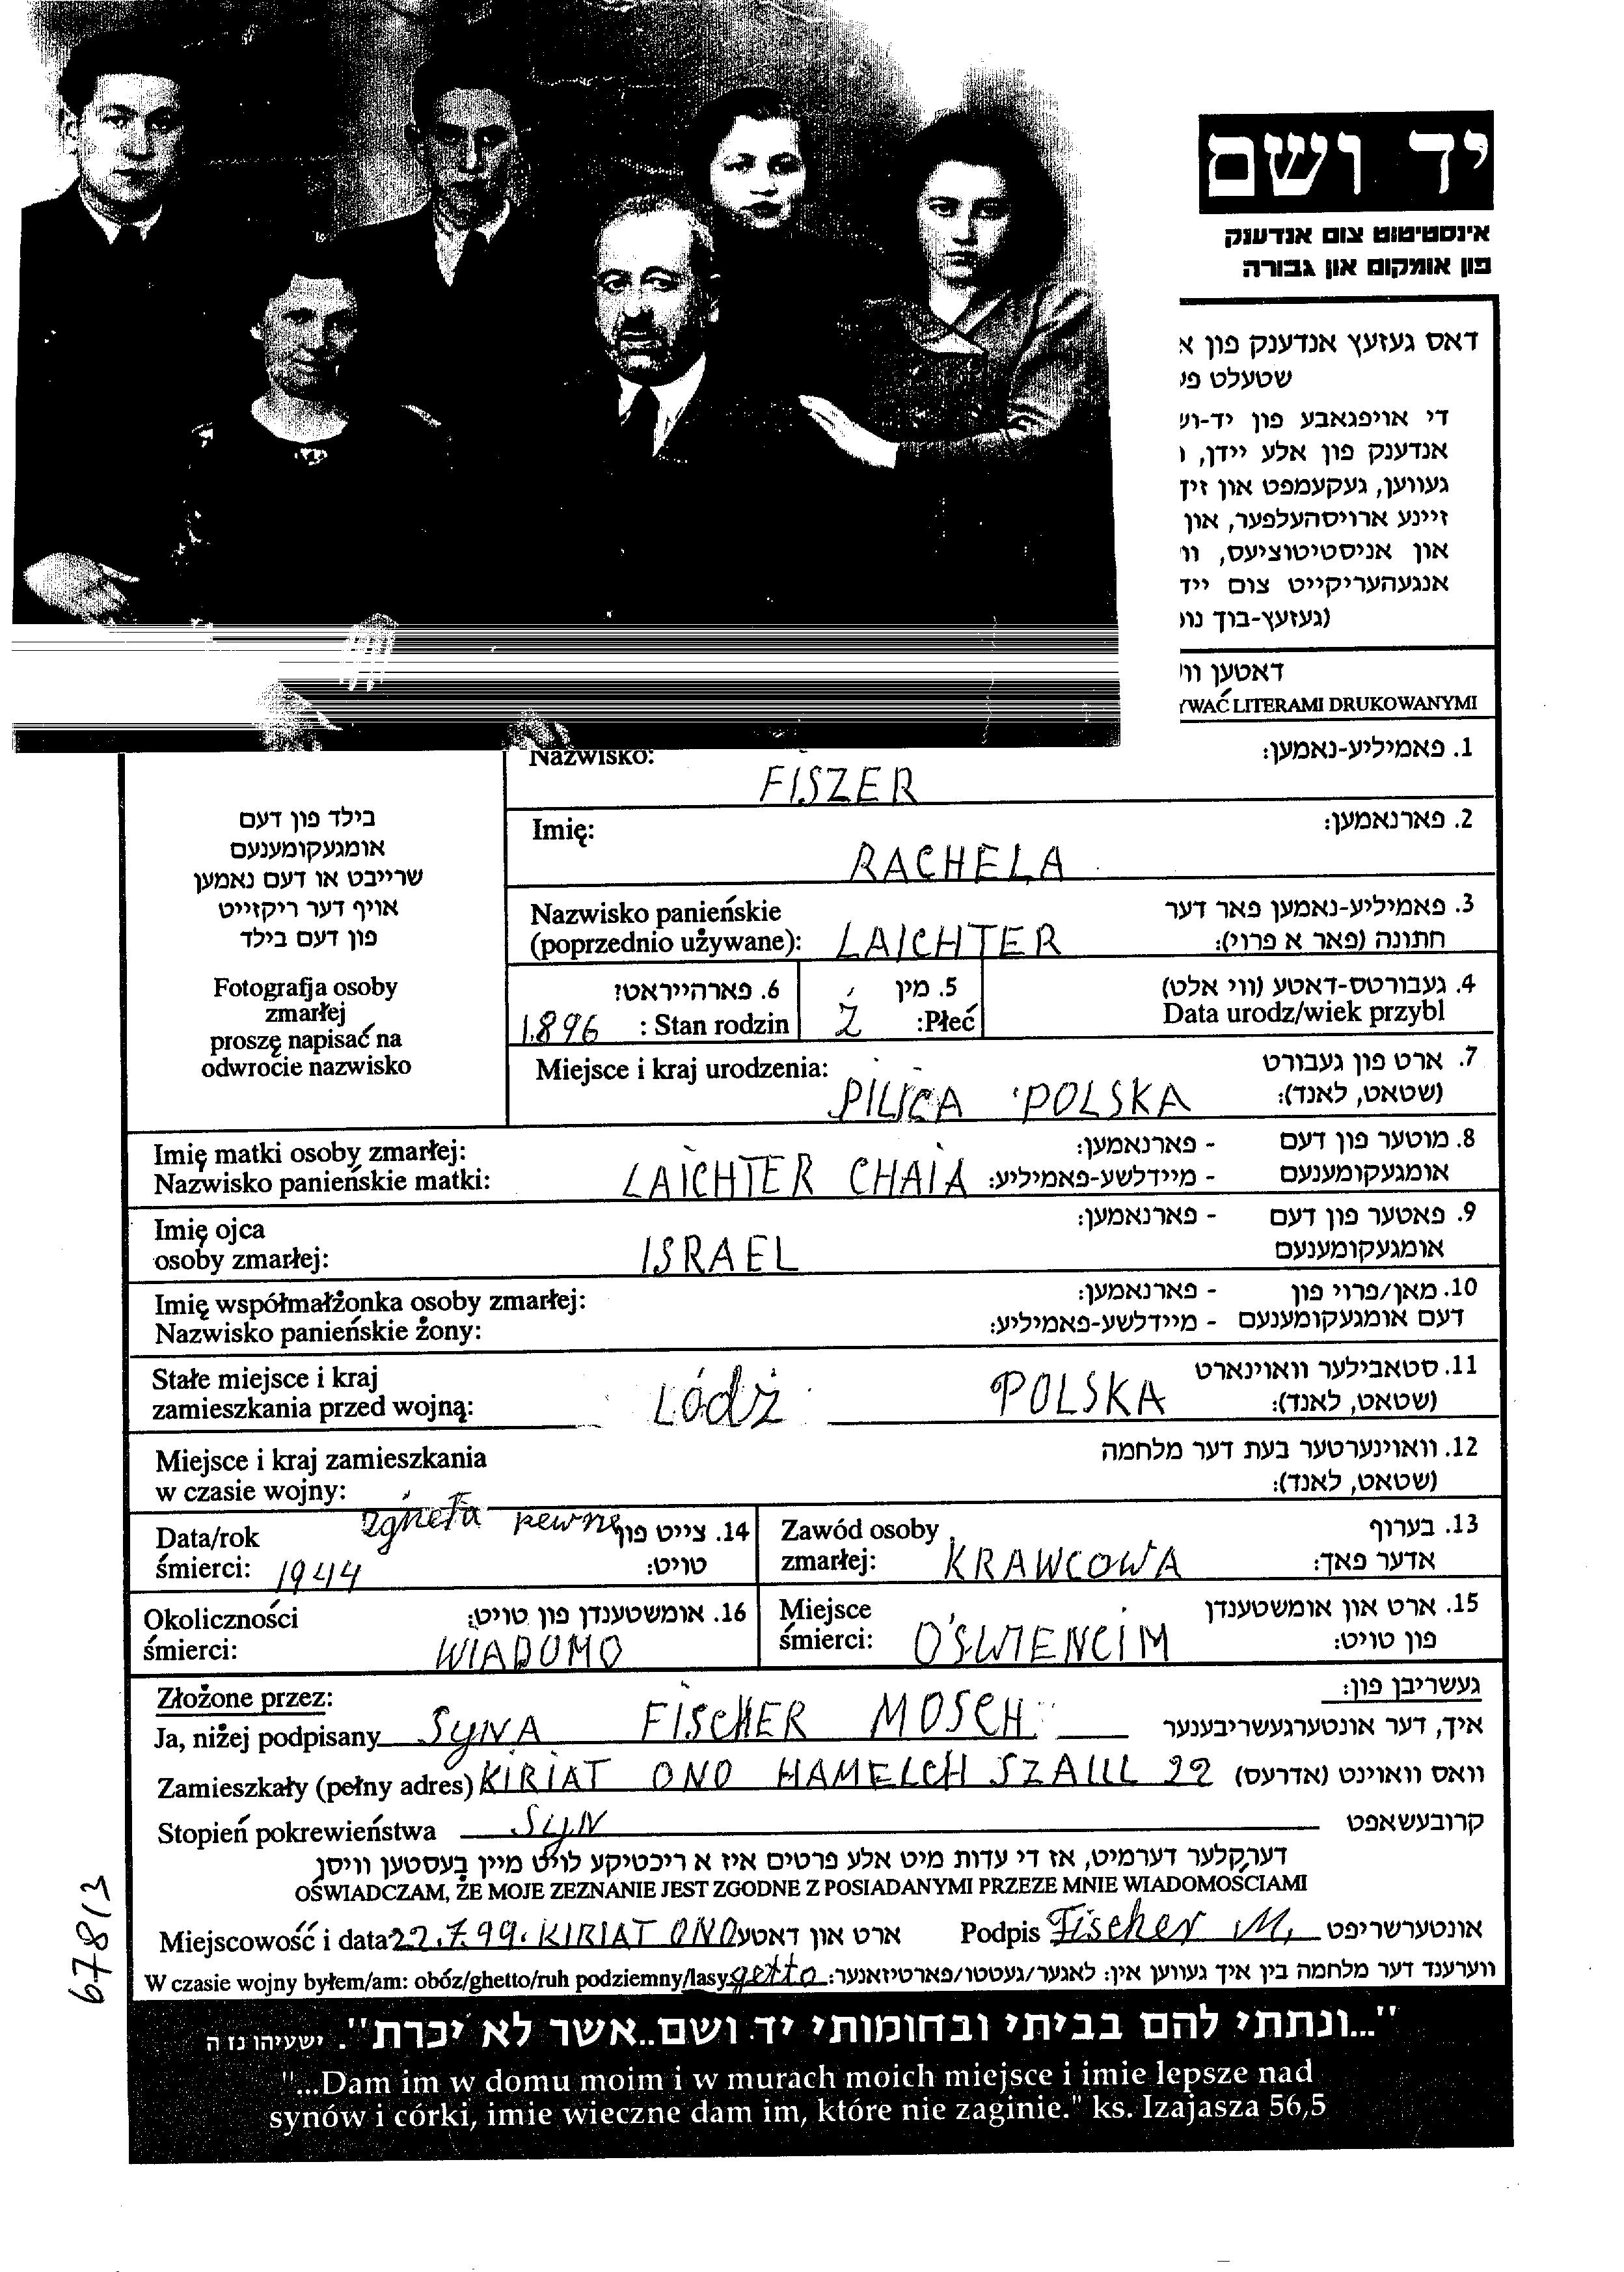 יד ושם
אינסטיטוט צום אנדענק
פון אומקום און גבורה
דאס געזעץ אנדענק פון א
שטעלט פע
די אויפגאבע פון יד-וש
אנדענק פון אלע יידן,
געווען, געקעמפט און זיך
זיינע ארויסהעלפער, און
און אניסטיטוציעס, וו
אנגעהעריקייט צום ייד
(געזעץ-בוך נומ
דאטען ווי
YWAĆ LITERAMI DRUKOWANYMI
Nazwisko: FISZER 1. פאמיליע-נאמען:
בילד פון דעם
אומגעקומענעם
שרייבט או דעם נאמען
אויף דער ריקזייט
פון דעם בילד
Fotografja osoby
zmarłej
proszę napisać na
odwrocie nazwisko
Imię: RACHELA 2. פארנאמען:
Nazwisko panieńskie 3. פאמיליע-נאמען פאר דער
(poprzednio używane): LAICHTER חתונה (פאר א פרוי):
6. פארהייראט? 5. מין 4. געבורטס-דאטע (ווי אלט)
1896 : Stan rodzin Ż :Płeć Data urodz/wiek przybl
Miejsce i kraj urodzenia: 7. ארט פון געבורט
PILICA POLSKA (שטאט, לאנד):
Imię matki osoby zmarłej: 8. מוטער פון דעם - פארנאמען:
Nazwisko panieńskie matki: LAICHTER CHAIA אומגעקומענעם - מיידלשע-פאמיליע:
Imię ojca 9. פאטער פון דעם - פארנאמען:
osoby zmarłej: ISRAEL אומגעקומענעם
Imię współmałżonka osoby zmarłej: 10. מאן/פרוי פון - פארנאמען:
Nazwisko panieńskie żony: דעם אומגעקומענעם - מיידלשע-פאמיליע:
Stałe miejsce i kraj 11. סטאבילער וואוינארט
zamieszkania przed wojną: Łódź POLSKA (שטאט, לאנד):
Miejsce i kraj zamieszkania 12. וואוינערטער בעת דער מלחמה
w czasie wojny: (שטאט, לאנד):
zgineła pewne
Data/rok 14. צייט פון Zawód osoby 13. בערוף
śmierci: 1944 טויט: zmarłej: KRAWCOWA אדער פאך:
Okoliczności 16. אומשטענדן פון טויט: Miejsce 15. ארט און אומשטענדן
śmierci: WIADOMO śmierci: OŚWIENCIM פון טויט:
Złożone przez: געשריבן פון:
Ja, niżej podpisany SYNA FISCHER MOSCH איך, דער אונטערגעשריבענער
Zamieszkały (pełny adres) KIRIAT ONO HAMELCH SZAUL 22 וואס וואוינט (אדרעס)
Stopień pokrewieństwa SYN קרובעשאפט
דערקלער דערמיט, אז די עדות מיט אלע פרטים איז א ריכטיקע לויט מיין בעסטען וויסן
OŚWIADCZAM, ŻE MOJE ZEZNANIE JEST ZGODNE Z POSIADANYMI PRZEZE MNIE WIADOMOŚCIAMI
Miejscowość i data 22.7.99. KIRIAT ONO ארט און דאטע Podpis Fischer M, אונטערשריפט
W czasie wojny byłem/am: obóz/ghetto/ruh podziemny/lasy getto ווערענד דער מלחמה בין איך געווען אין: לאגער/געטטו/פארטיזאנער:
67813
"...ונתתי להם בביתי ובחומותי יד ושם..אשר לא יכרת". ישעיהו נז ה
"...Dam im w domu moim i w murach moich miejsce i imie lepsze nad
synów i córki, imie wieczne dam im, które nie zaginie." ks. Izajasza 56,5